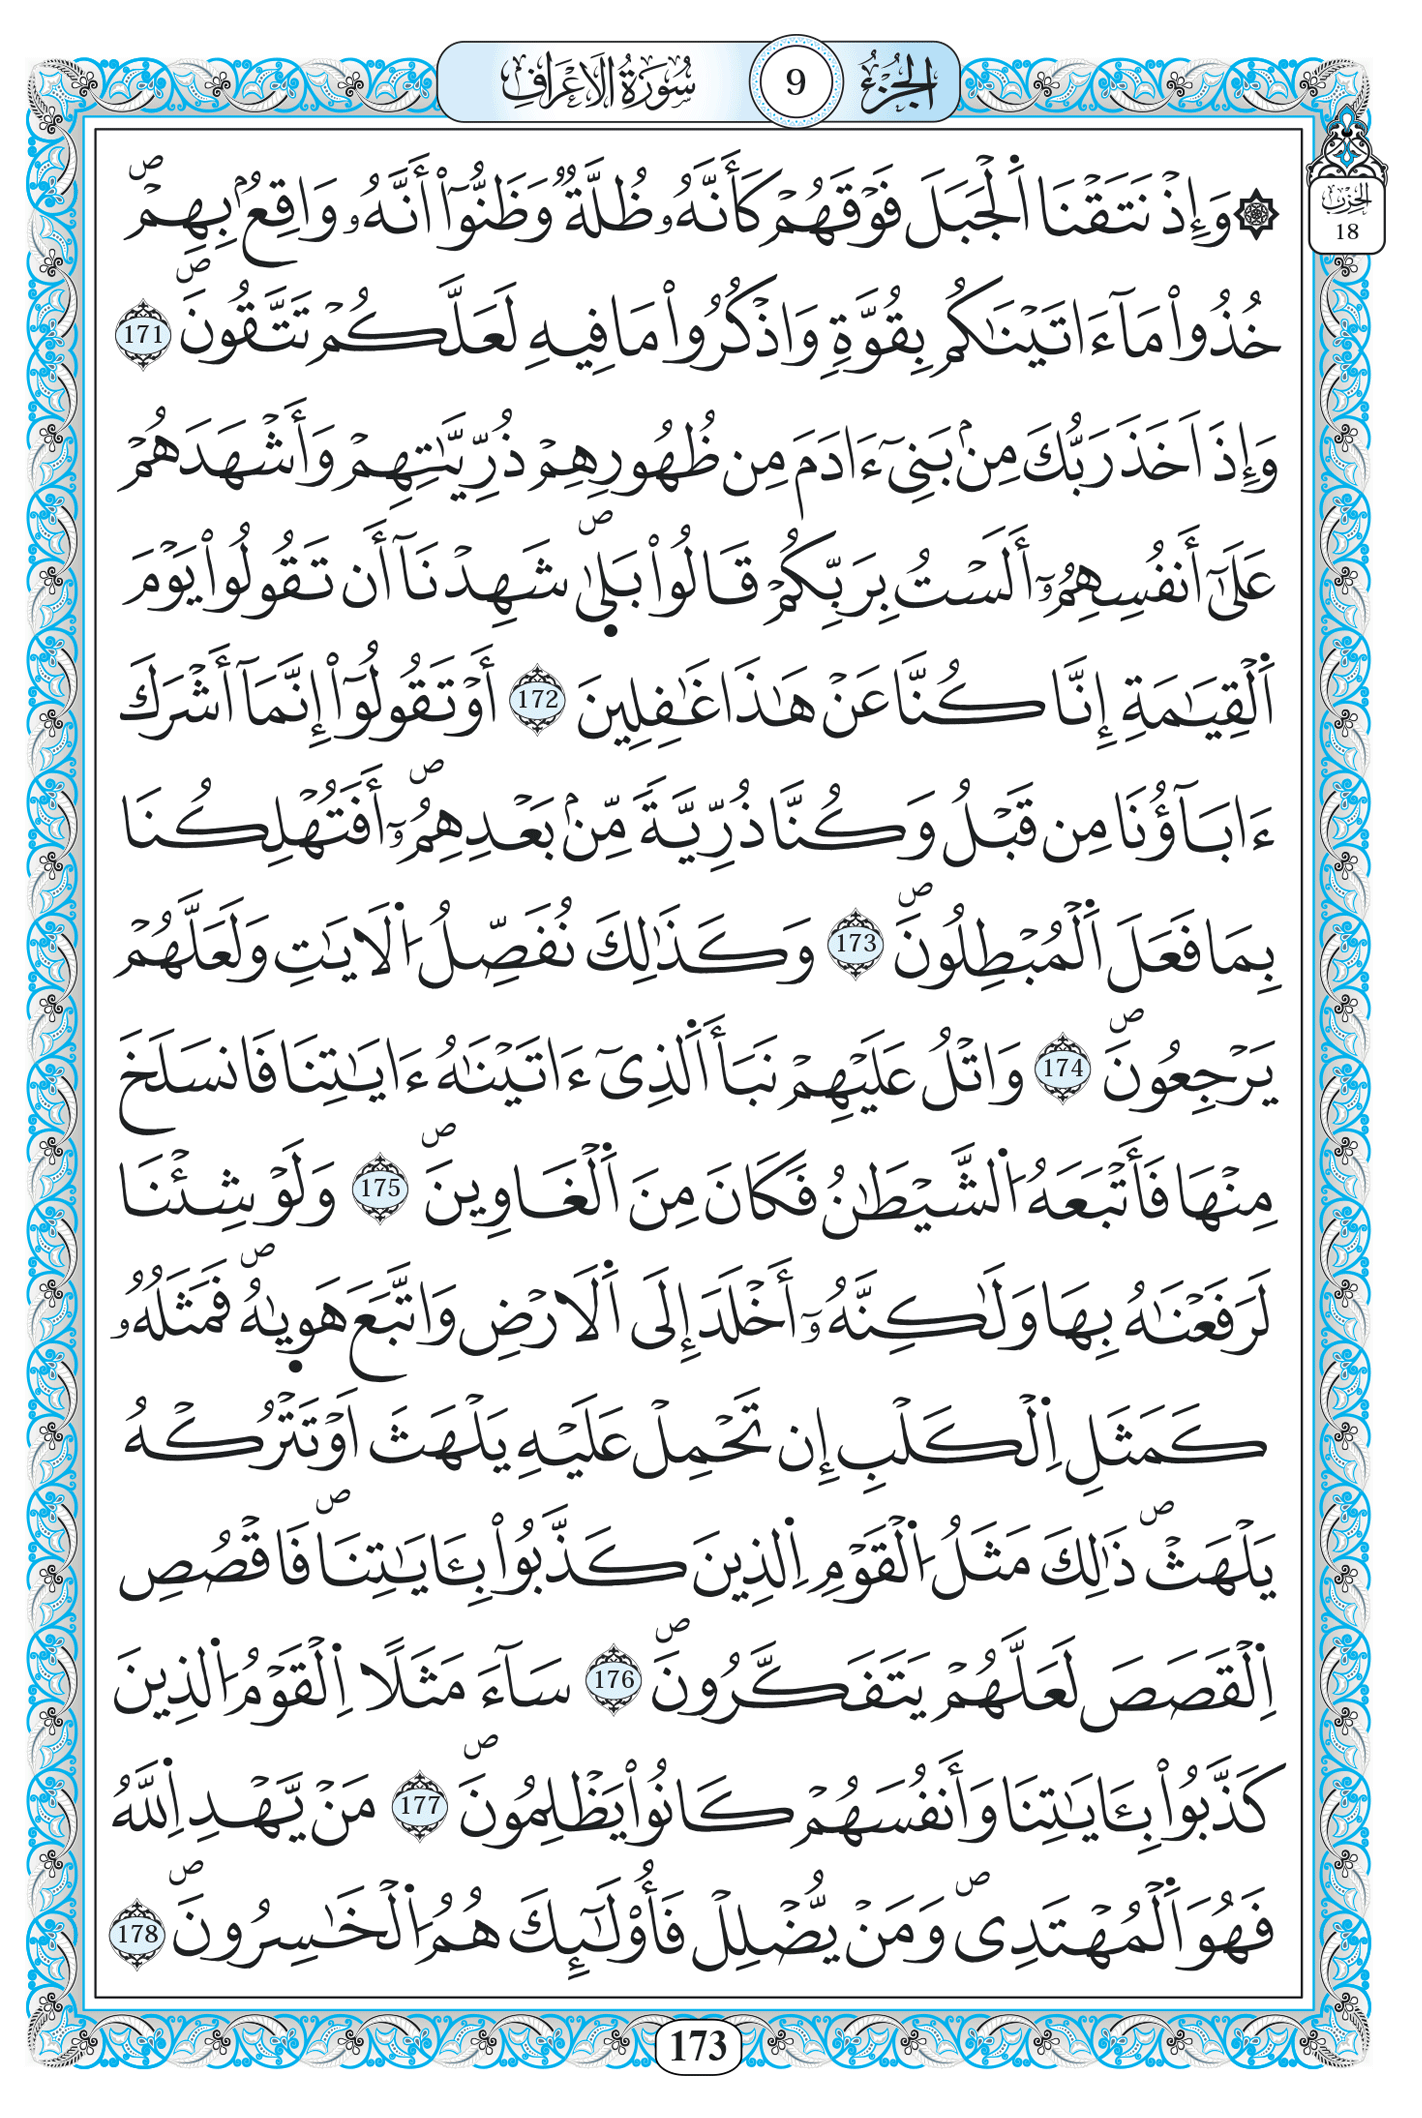 الجزء 9 سورة الاعراف
الحزب 18
۞ وَإِذْ نَتَقْنَا اَ۬لْجَبَلَ فَوْقَهُمْ كَأَنَّهُۥ ظُلَّةٞ وَظَنُّوٓاْ أَنَّهُۥ وَاقِعُۢ بِهِمْۖ
خُذُواْ مَآ ءَاتَيْنَٰكُم بِقُوَّةٖ وَاذْكُرُواْ مَا فِيهِ لَعَلَّكُمْ تَتَّقُونَۖ 171
وَإِذَ اَخَذَ رَبُّكَ مِنۢ بَنِيٓ ءَادَمَ مِن ظُهُورِهِمْ ذُرِّيَّٰتِهِمْ وَأَشْهَدَهُمْ
عَلَىٰٓ أَنفُسِهِمُۥٓ أَلَسْتُ بِرَبِّكُمْ قَالُواْ بَل۪يٰۖ شَهِدْنَآ أَن تَقُولُواْ يَوْمَ
اَ۬لْقِيَٰمَةِ إِنَّا كُنَّا عَنْ هَٰذَا غَٰفِلِينَ 172 أَوْ تَقُولُوٓاْ إِنَّمَآ أَشْرَكَ
ءَابَآؤُنَا مِن قَبْلُ وَكُنَّا ذُرِّيَّةٗ مِّنۢ بَعْدِهِمُۥٓۖ أَفَتُهْلِكُنَا
بِمَا فَعَلَ اَ۬لْمُبْطِلُونَۖ 173 وَكَذَٰلِكَ نُفَصِّلُ اُ۬لَايَٰتِ وَلَعَلَّهُمْ
يَرْجِعُونَۖ 174 وَاتْلُ عَلَيْهِمْ نَبَأَ اَ۬لَّذِيٓ ءَاتَيْنَٰهُ ءَايَٰتِنَا فَانسَلَخَ
مِنْهَا فَأَتْبَعَهُ اُ۬لشَّيْطَٰنُ فَكَانَ مِنَ اَ۬لْغَاوِينَۖ 175 وَلَوْ شِئْنَا
لَرَفَعْنَٰهُ بِهَا وَلَٰكِنَّهُۥٓ أَخْلَدَ إِلَى اَ۬لَارْضِ وَاتَّبَعَ هَو۪يٰهُۖ فَمَثَلُهُۥ
كَمَثَلِ اِ۬لْكَلْبِ إِن تَحْمِلْ عَلَيْهِ يَلْهَثَ اَوْ تَتْرُكْهُ
يَلْهَثْۖ ذَٰلِكَ مَثَلُ اُ۬لْقَوْمِ اِ۬لذِينَ كَذَّبُواْ بِـَٔايَٰتِنَاۖ فَاقْصُصِ
اِ۬لْقَصَصَ لَعَلَّهُمْ يَتَفَكَّرُونَۖ 176 سَآءَ مَثَلًا اِ۬لْقَوْمُ اُ۬لذِينَ
كَذَّبُواْ بِـَٔايَٰتِنَا وَأَنفُسَهُمْ كَانُواْ يَظْلِمُونَۖ 177 مَنْ يَّهْدِ اِ۬للَّهُ
فَهُوَ اَ۬لْمُهْتَدِيۖ وَمَنْ يُّضْلِلْ فَأُوْلَٰٓئِكَ هُمُ اُ۬لْخَٰسِرُونَۖ 178
173